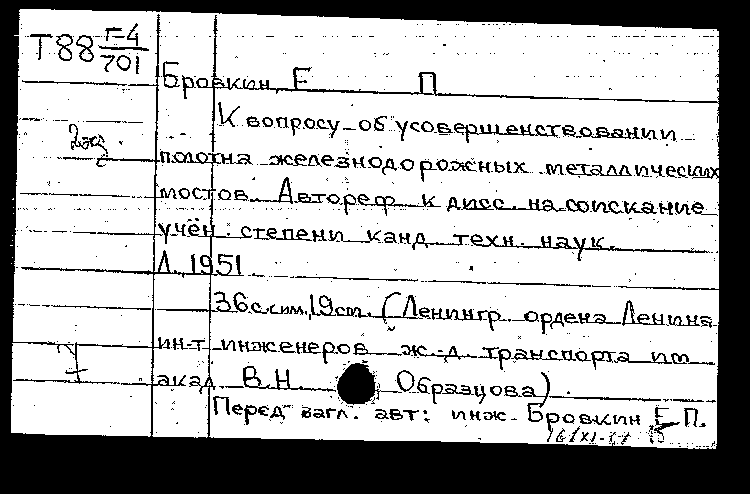 Т88 Г-4
701
Бровкин, Е П
К вопросу об усовершенствовании
2 экз.
полотна железнодорожных металлических
мостов. Автореф. к дисс. на соискание
учён. степени канд. техн. наук.
Л., 1951.
36 с. с им. 19 см. (Ленингр. ордена Ленина
ин-т инженеров ж.-д. транспорта им.
акад. В.Н. Образцова).
Перед загл. авт: инж. Бровкин Е. П.